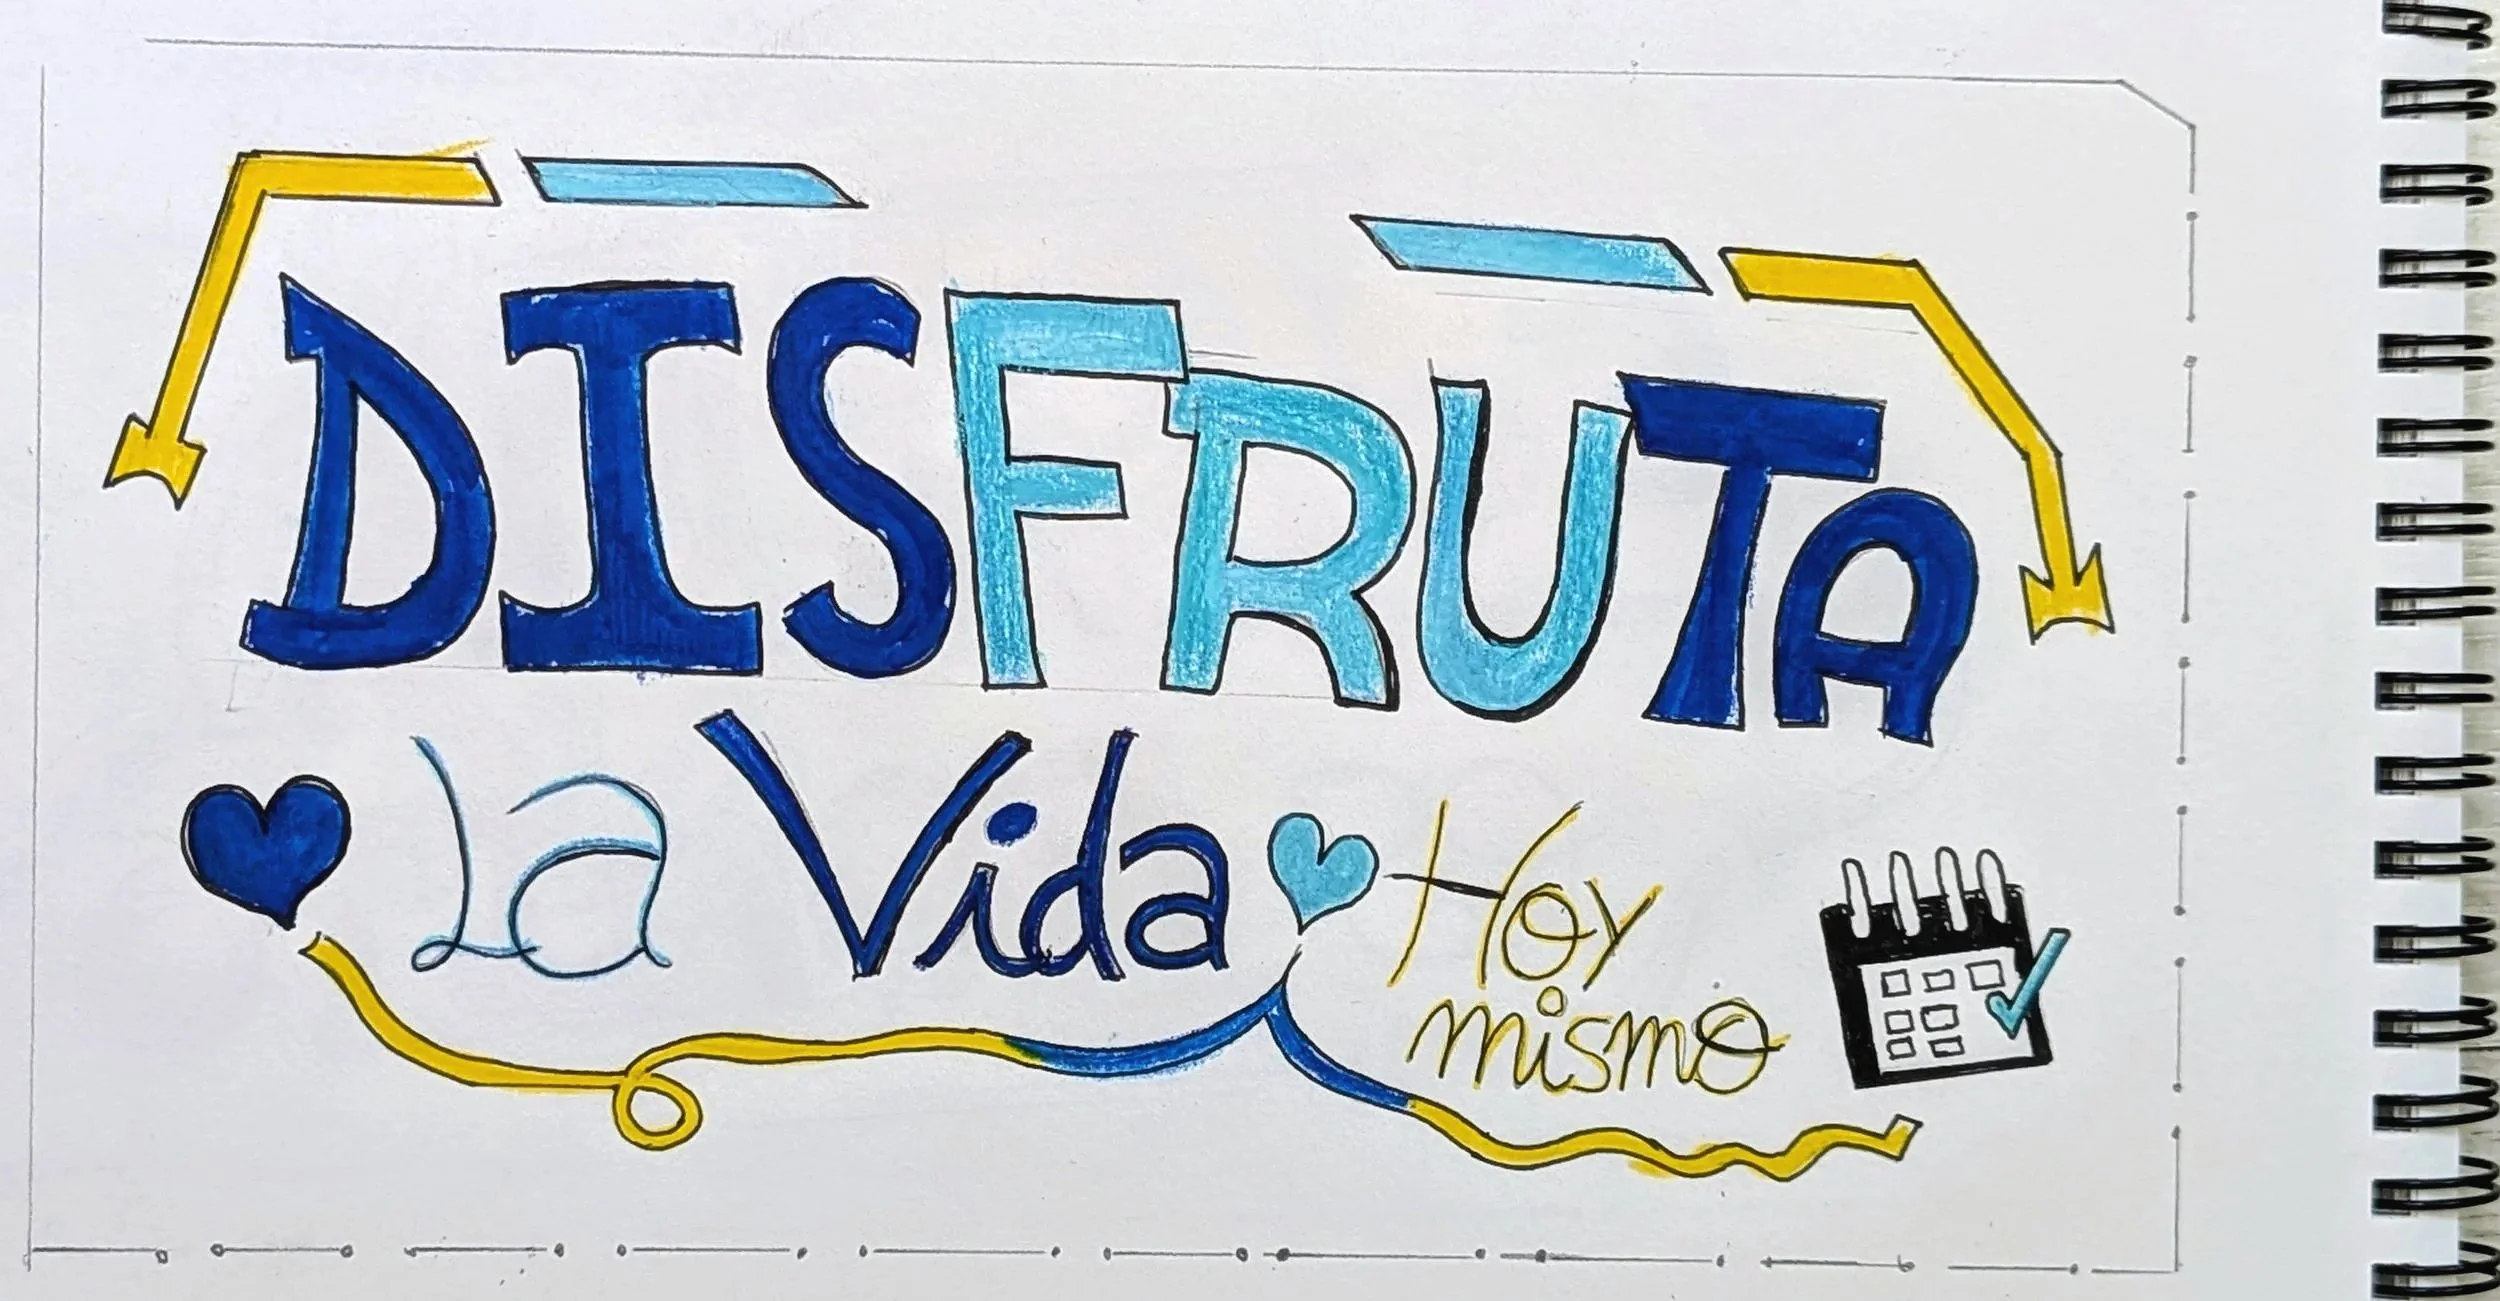 DISFRUTA
La Vida Hoy
mismo